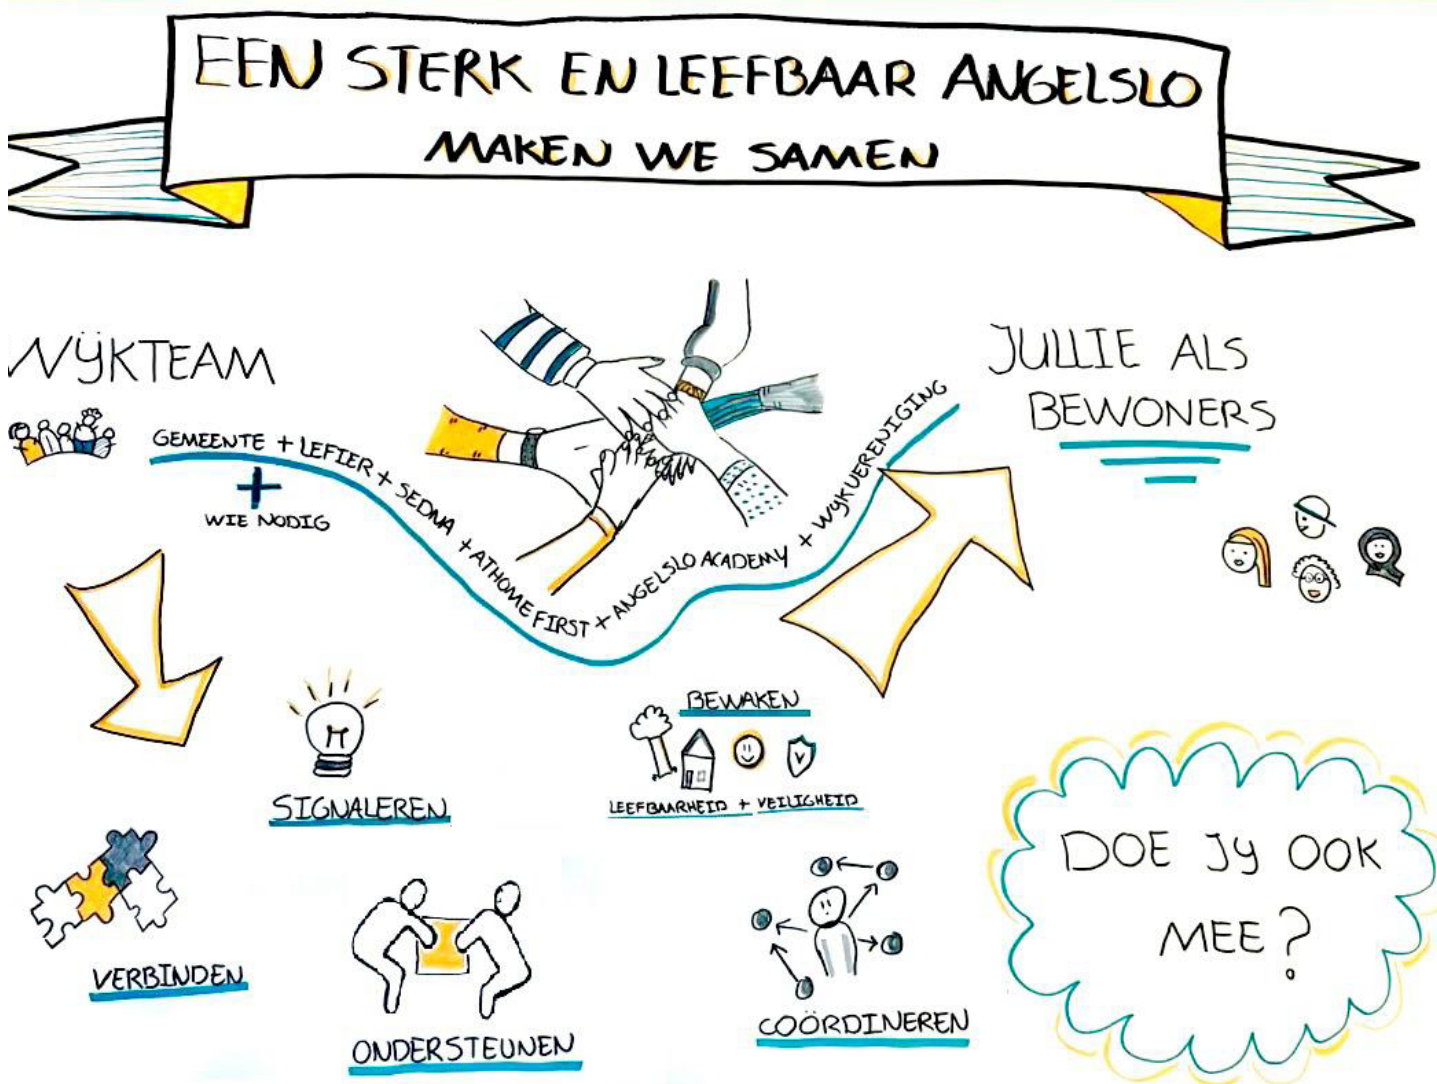 EEN STERK EN LEEFBAAR ANGELSLO
MAKEN WE SAMEN
WIJKTEAM
GEMEENTE + LEFIER + SEDNA + ATHOME FIRST + ANGELSLO ACADEMY + WIJKVERENIGING
+
WIE NODIG
JULLIE ALS
BEWONERS
SIGNALEREN
BEWAKEN
LEEFBAARHEID + VEILIGHEID
VERBINDEN
ONDERSTEUNEN
COÖRDINEREN
DOE JIJ OOK
MEE?